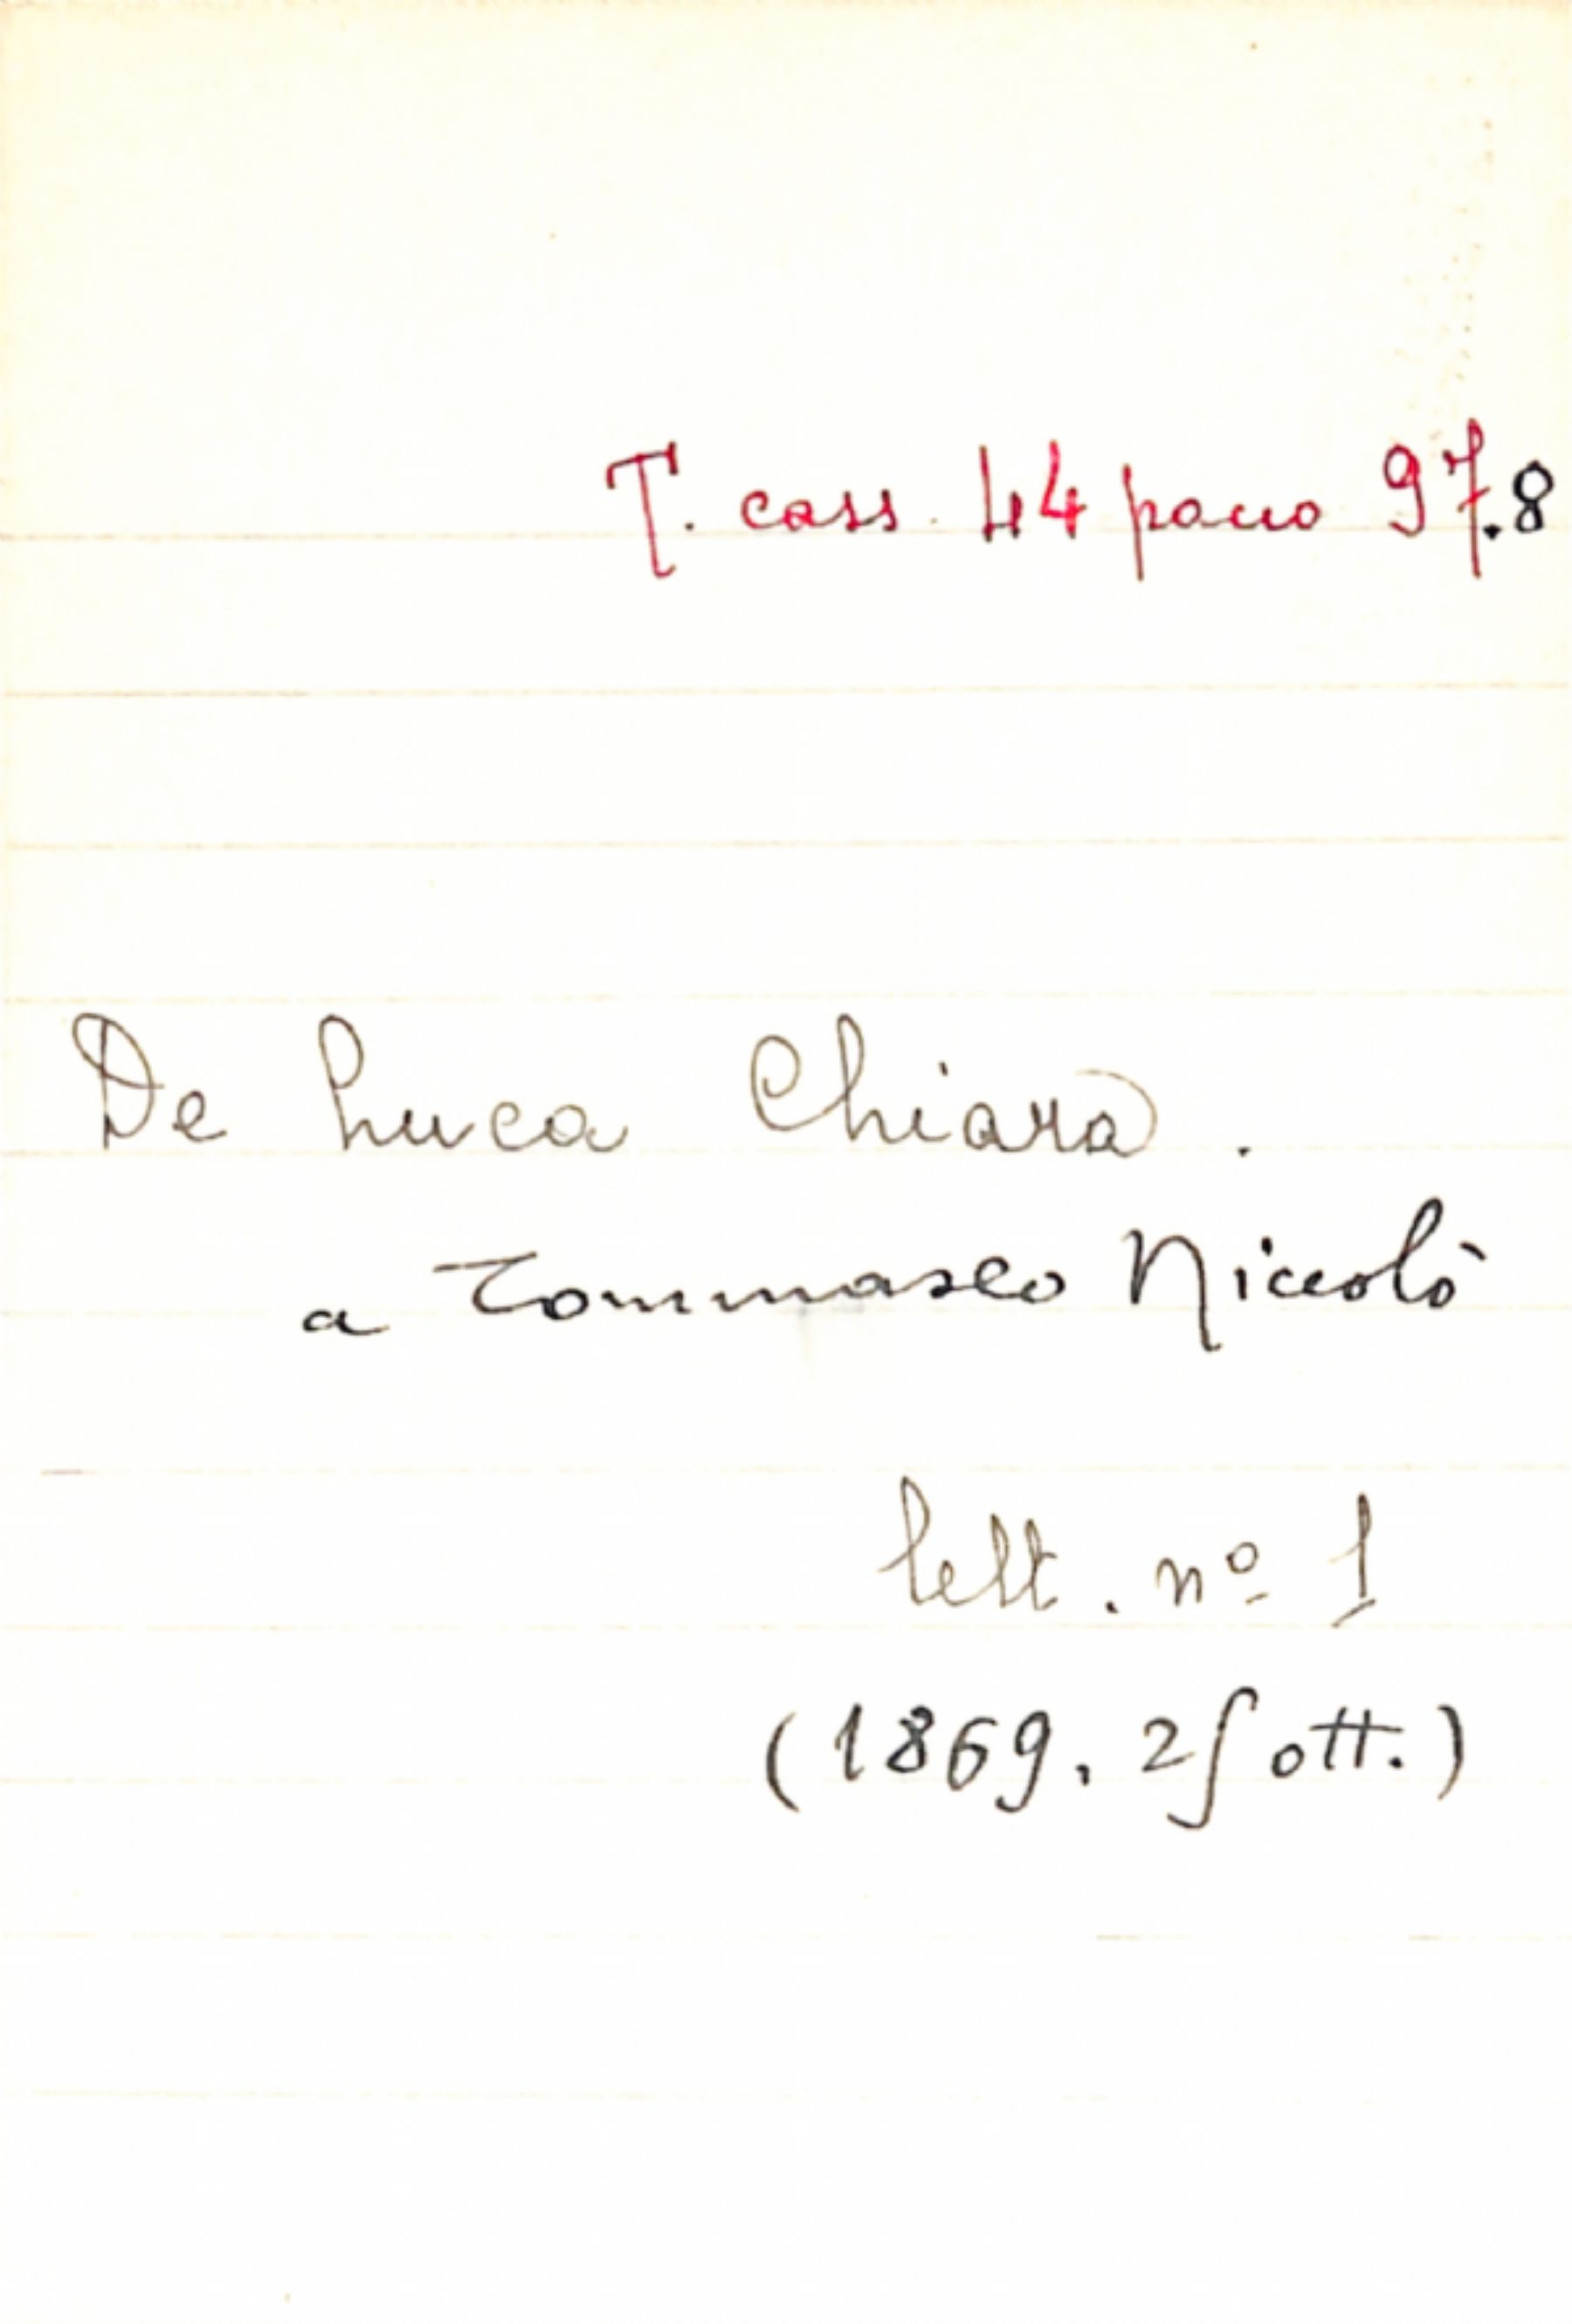 T. cass. 44 pacco 97.8
De Luca Chiara.
a Tommaseo Niccolò
lett. nº 1
(1869. 25 ott.)